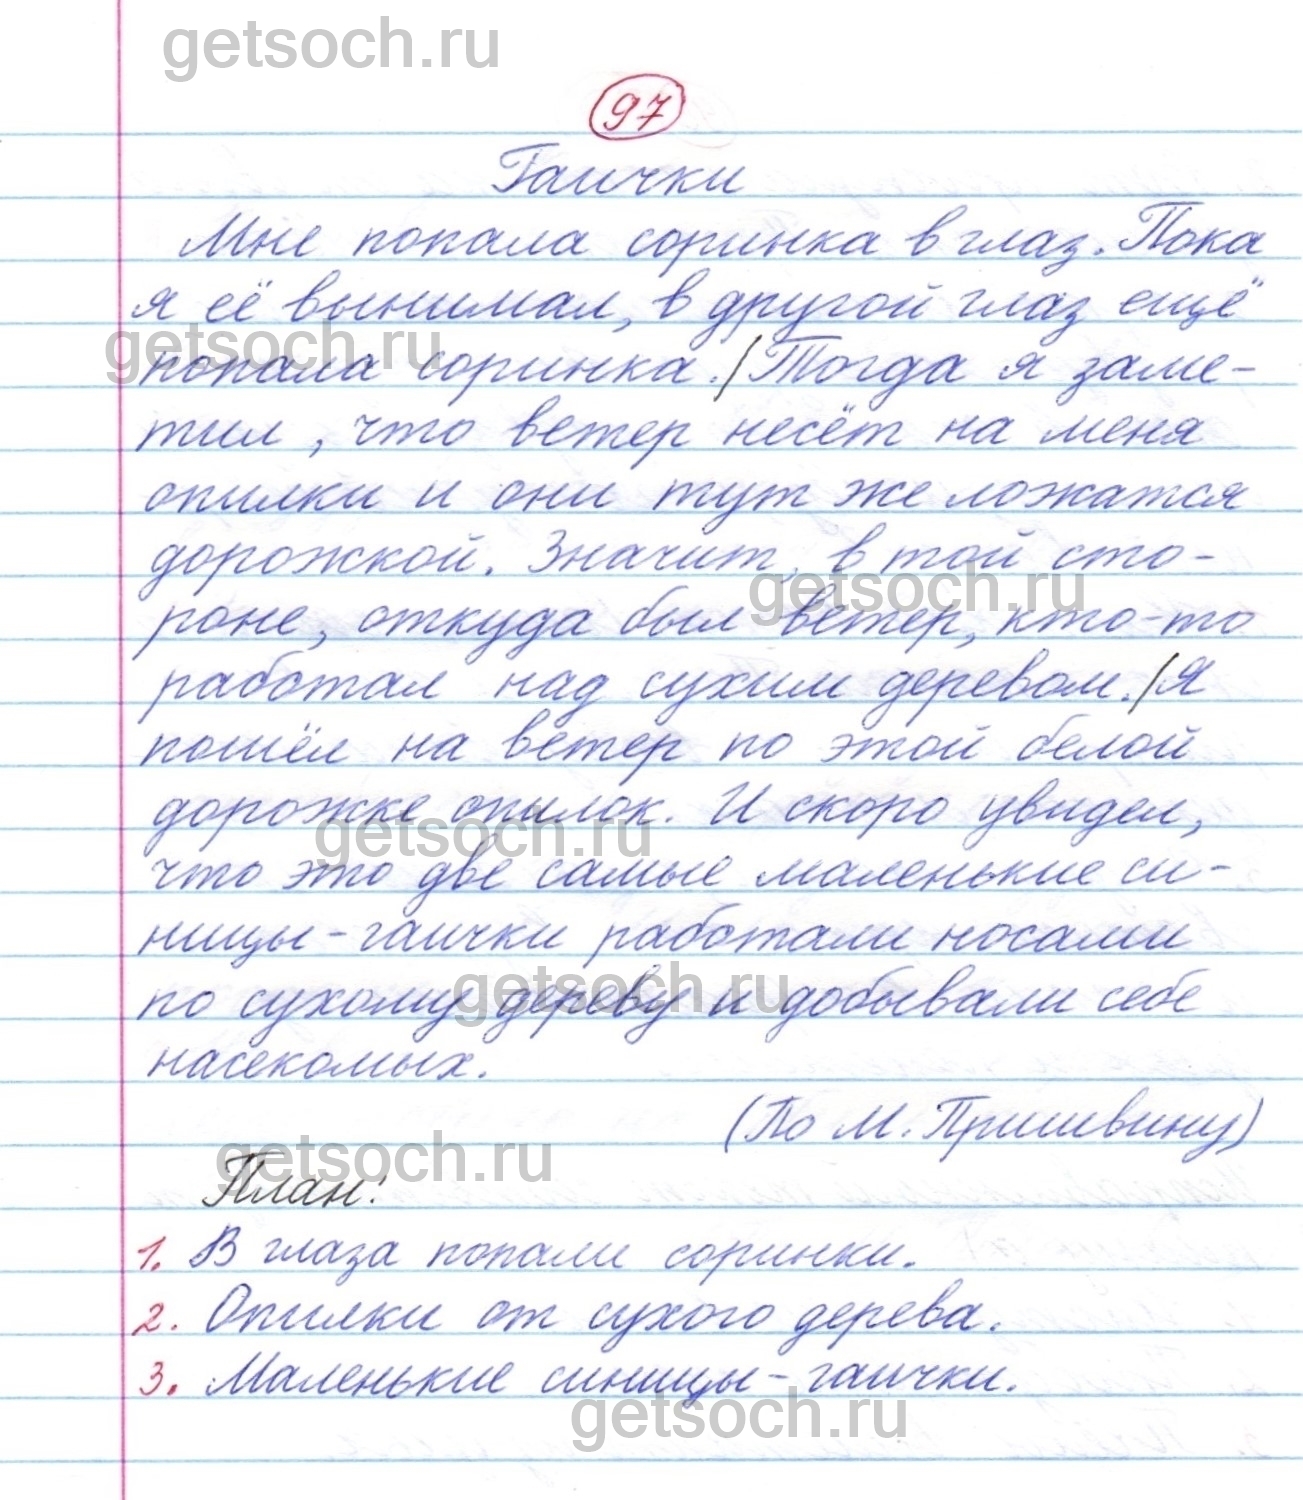 getsoch.ru
97
Гаички
Мне попала соринка в глаз. Пока
я её вынимал, в другой глаз ещё
getsoch.ru
попала соринка./Тогда я заме-
тил, что ветер несёт на меня
опилки и они тут же ложатся
дорожкой. Значит, в той сто-
getsoch.ru
роне, откуда был ветер, кто-то
работал над сухим деревом./Я
пошёл на ветер по этой белой
дорожке опилок. И скоро увидел,
getsoch.ru
что это две самые маленькие си-
ницы-гаички работали носами
getsoch.ru
по сухому дереву и добывали себе
насекомых.
(По М. Пришвину)
getsoch.ru
План:
1. В глаза попали соринки.
2. Опилки от сухого дерева.
3. Маленькие синицы-гаички.
getsoch.ru